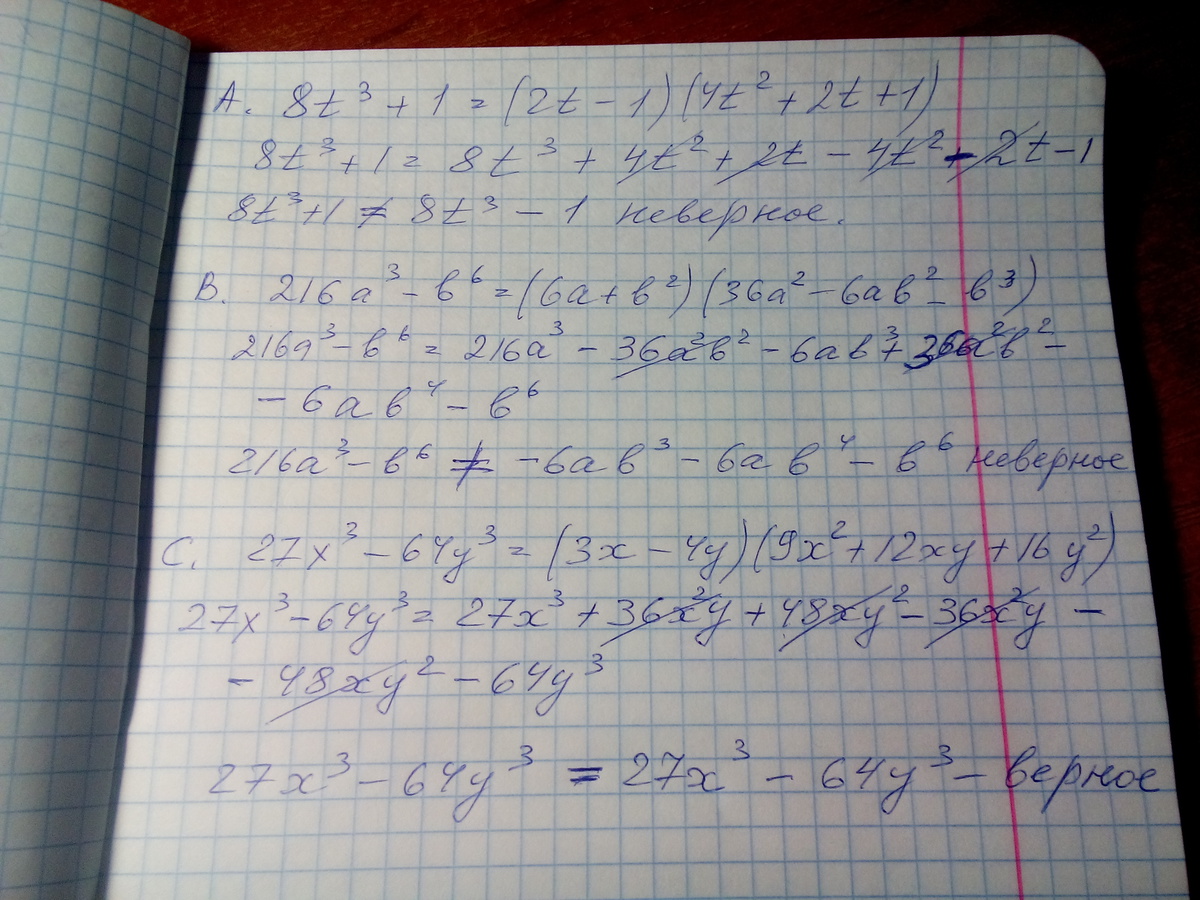 А. 8t³ + 1 = (2t - 1)(4t² + 2t + 1)
8t³ + 1 = 8t³ + 4t² + 2t - 4t² - 2t - 1
8t³ + 1 ≠ 8t³ - 1 неверное.
В. 216a³ - в⁶ = (6a + в²)(36a² - 6aв² - в³)
216a³ - в⁶ = 216a³ - 36a²в² - 6aв³ + 36a²в² -
- 6aв⁴ - в⁶
216a³ - в⁶ ≠ - 6aв³ - 6aв⁴ - в⁶ неверное
С. 27x³ - 64y³ = (3x - 4y)(9x² + 12xy + 16y²)
27x³ - 64y³ = 27x³ + 36x²y + 48xy² - 36x²y -
- 48xy² - 64y³
27x³ - 64y³ = 27x³ - 64y³ - верное